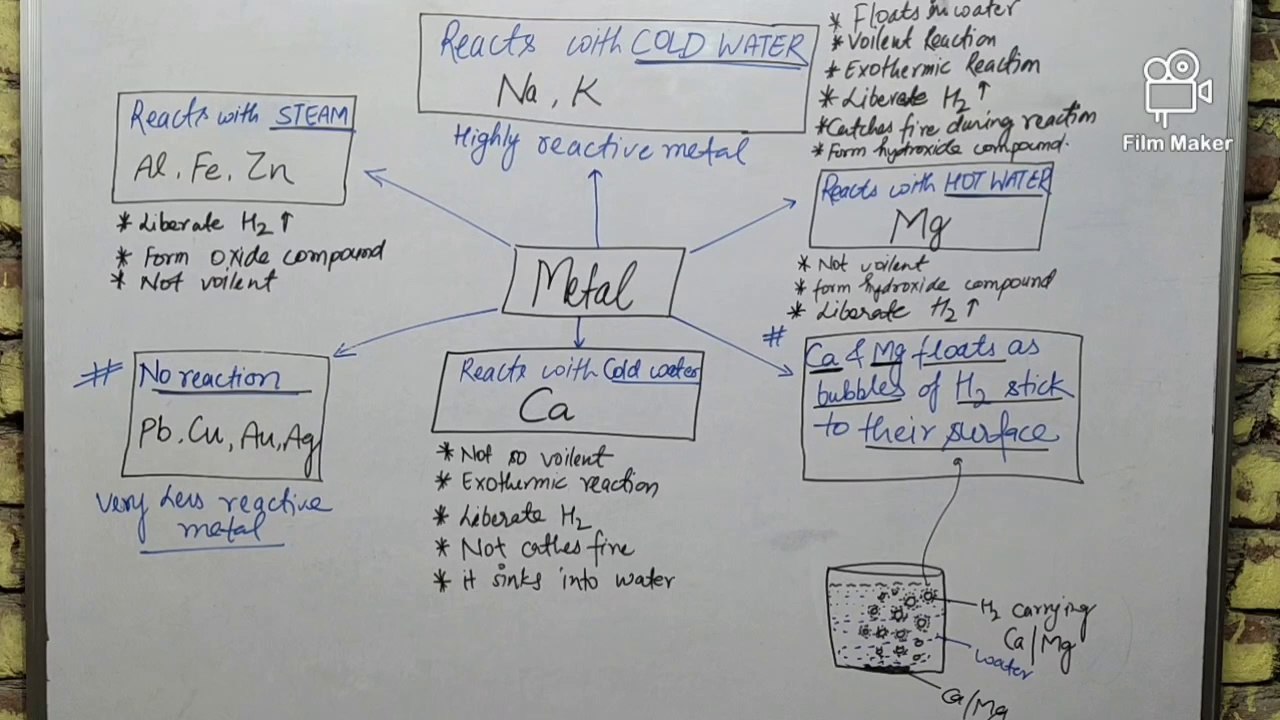 Reacts with COLD WATER
Na, K
Highly reactive metal
* Floats in water
* Voilent Reaction
* Exothermic Reaction
* Liberate H₂ ↑
* Catches fire during reaction
* Form hydroxide compound.
Film Maker
Reacts with STEAM
Al, Fe, Zn
* Liberate H₂ ↑
* Form oxide compound
* Not voilent
Reacts with HOT WATER
Mg
* Not voilent
* form hydroxide compound
* Liberate H₂ ↑
Metal
# No reaction
Pb, Cu, Au, Ag
Very Less reactive
metal
Reacts with Cold water
Ca
* Not so voilent
* Exothermic reaction
* Liberate H₂
* Not cathes fire
* it sinks into water
# Ca & Mg floats as
bubbles of H₂ stick
to their surface
H₂ carrying
Ca/Mg
water
Ca/Mg